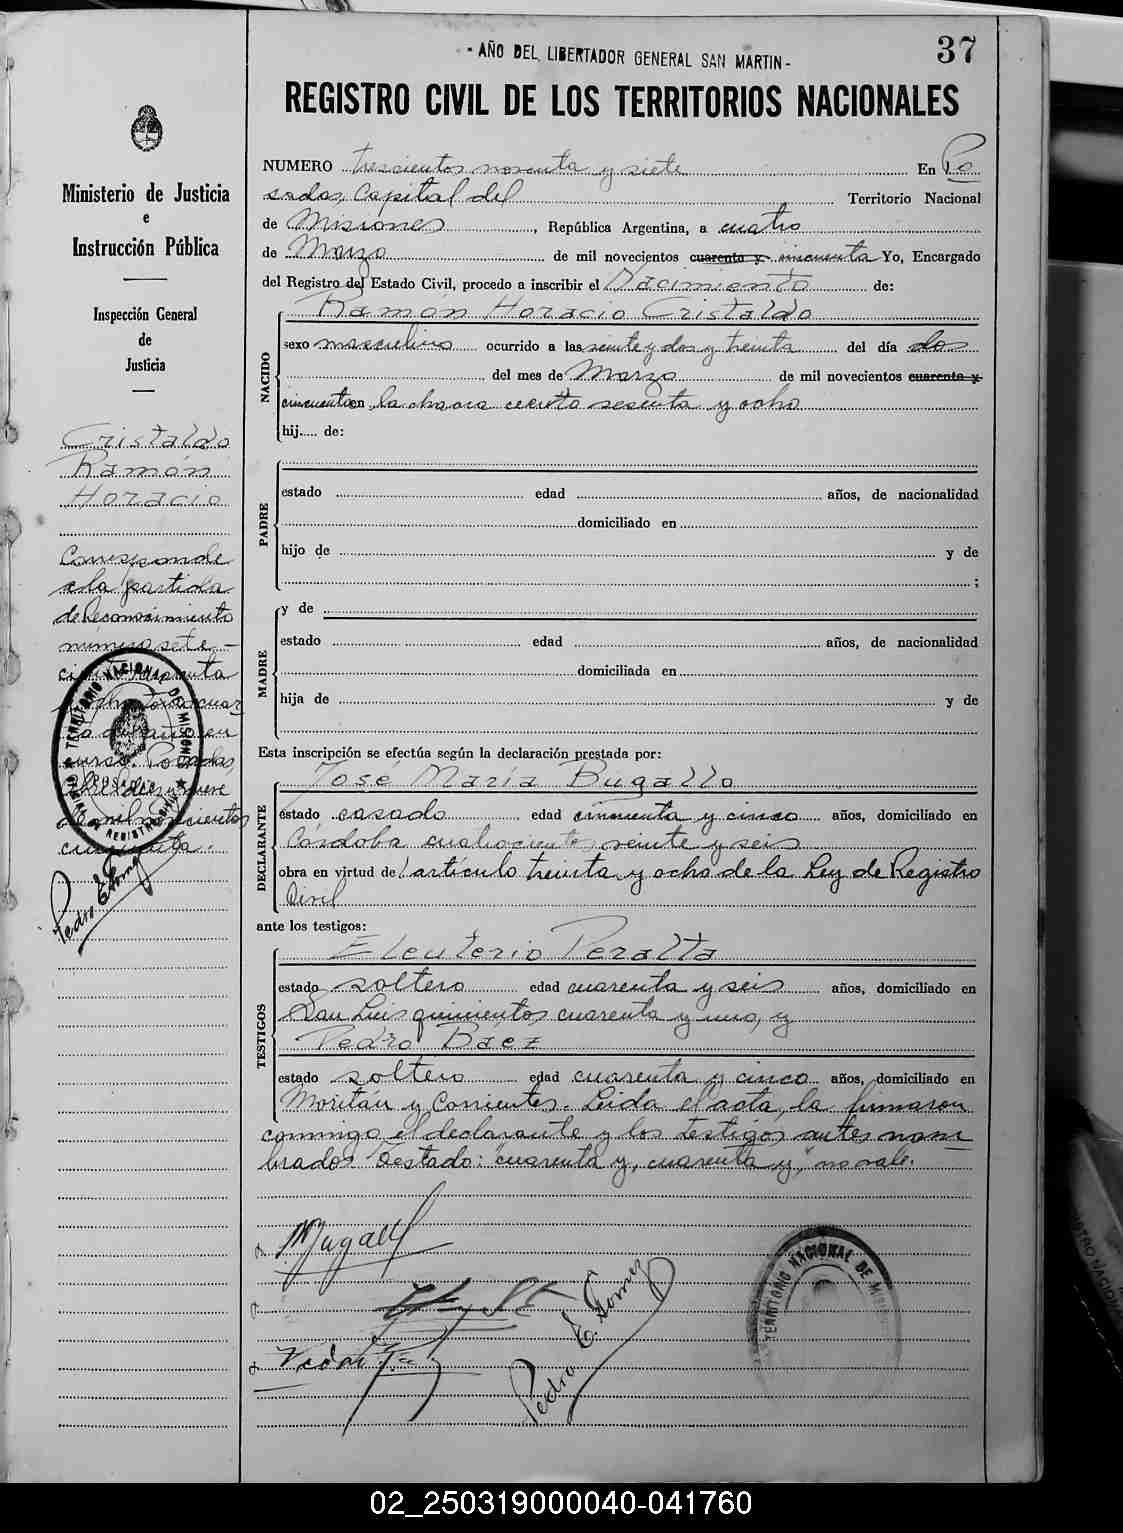 - AÑO DEL LIBERTADOR GENERAL SAN MARTIN -
37
REGISTRO CIVIL DE LOS TERRITORIOS NACIONALES
Ministerio de Justicia
e
Instrucción Pública
Inspección General
de
Justicia
Cristaldo
Ramón
Horacio
Corresponde
a la partida
de Reconocimiento
número sete-
curso. Posadas,
de mil novecientos
cincuenta.
Pedro E. Gomez
TERRITORIO NACIONAL DE MISIONES
NUMERO trescientos noventa y siete En Po
sadas, Capital del Territorio Nacional
de Misiones, República Argentina, a cuatro
de Marzo de mil novecientos cuarenta y cincuenta Yo, Encargado
del Registro del Estado Civil, procedo a inscribir el Nacimiento de:
Ramón Horacio Cristaldo
NACIDO
sexo masculino ocurrido a las veinte y dos y treinta del día dos
del mes de Marzo de mil novecientos cuarenta y
cincuenta en la chacra ciento sesenta y ocho
hij.... de:
PADRE
estado edad años, de nacionalidad
domiciliado en
hijo de y de
;
MADRE
y de
estado edad años, de nacionalidad
domiciliada en
hija de y de
Esta inscripción se efectúa según la declaración prestada por:
DECLARANTE
José María Bugallo
estado casado edad cincuenta y cinco años, domiciliado en
Córdoba cuatrocientos veinte y seis
obra en virtud del artículo treinta y ocho de la Ley de Registro
Civil
ante los testigos:
TESTIGOS
Eleuterio Peralta
estado soltero edad cuarenta y seis años, domiciliado en
San Luis quinientos cuarenta y uno, y
Pedro Baez
estado soltero edad cuarenta y cinco años, domiciliado en
Moritán y Corrientes. Leida el acta, la firmaron
conmigo el declarante y los testigos antes nom
brados. Testado: "cuarenta y, cuarenta y," no vale.
Pedro E. Gomez
TERRITORIO NACIONAL DE
02_250319000040-041760